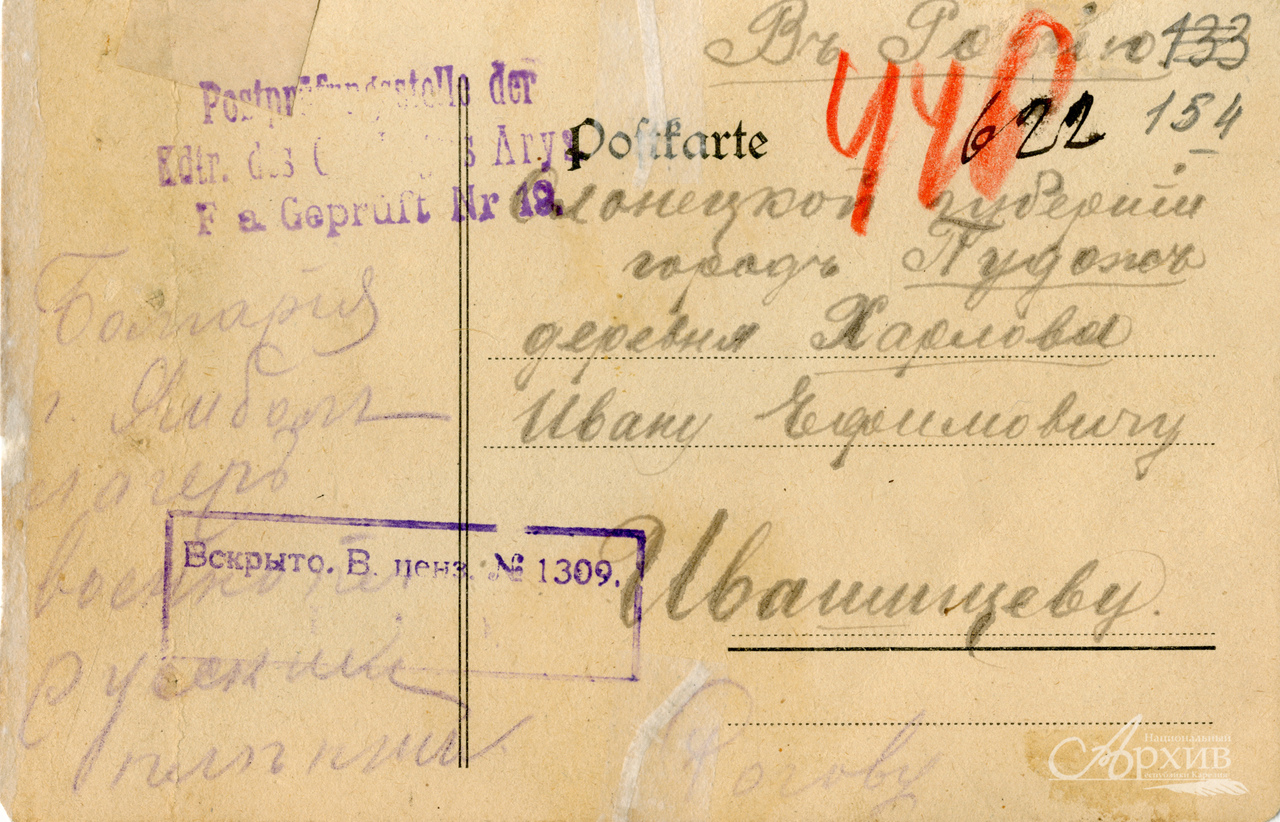 Въ Росiю
133
440
622
154
Postprüfungsstelle der
Kdtr. des G s Arys
F a Geprüft Nr 19.
Postkarte
Олонецкой губернiи
городъ Пудожъ
деревня Харлова
Ивану Ефимовичу
Ивашинцеву.
Болгарiя
г. Ямболъ
лагеръ
Русский
Вскрыто. В. ценз. № 1309.
Национальный
Архив
республики Карелия